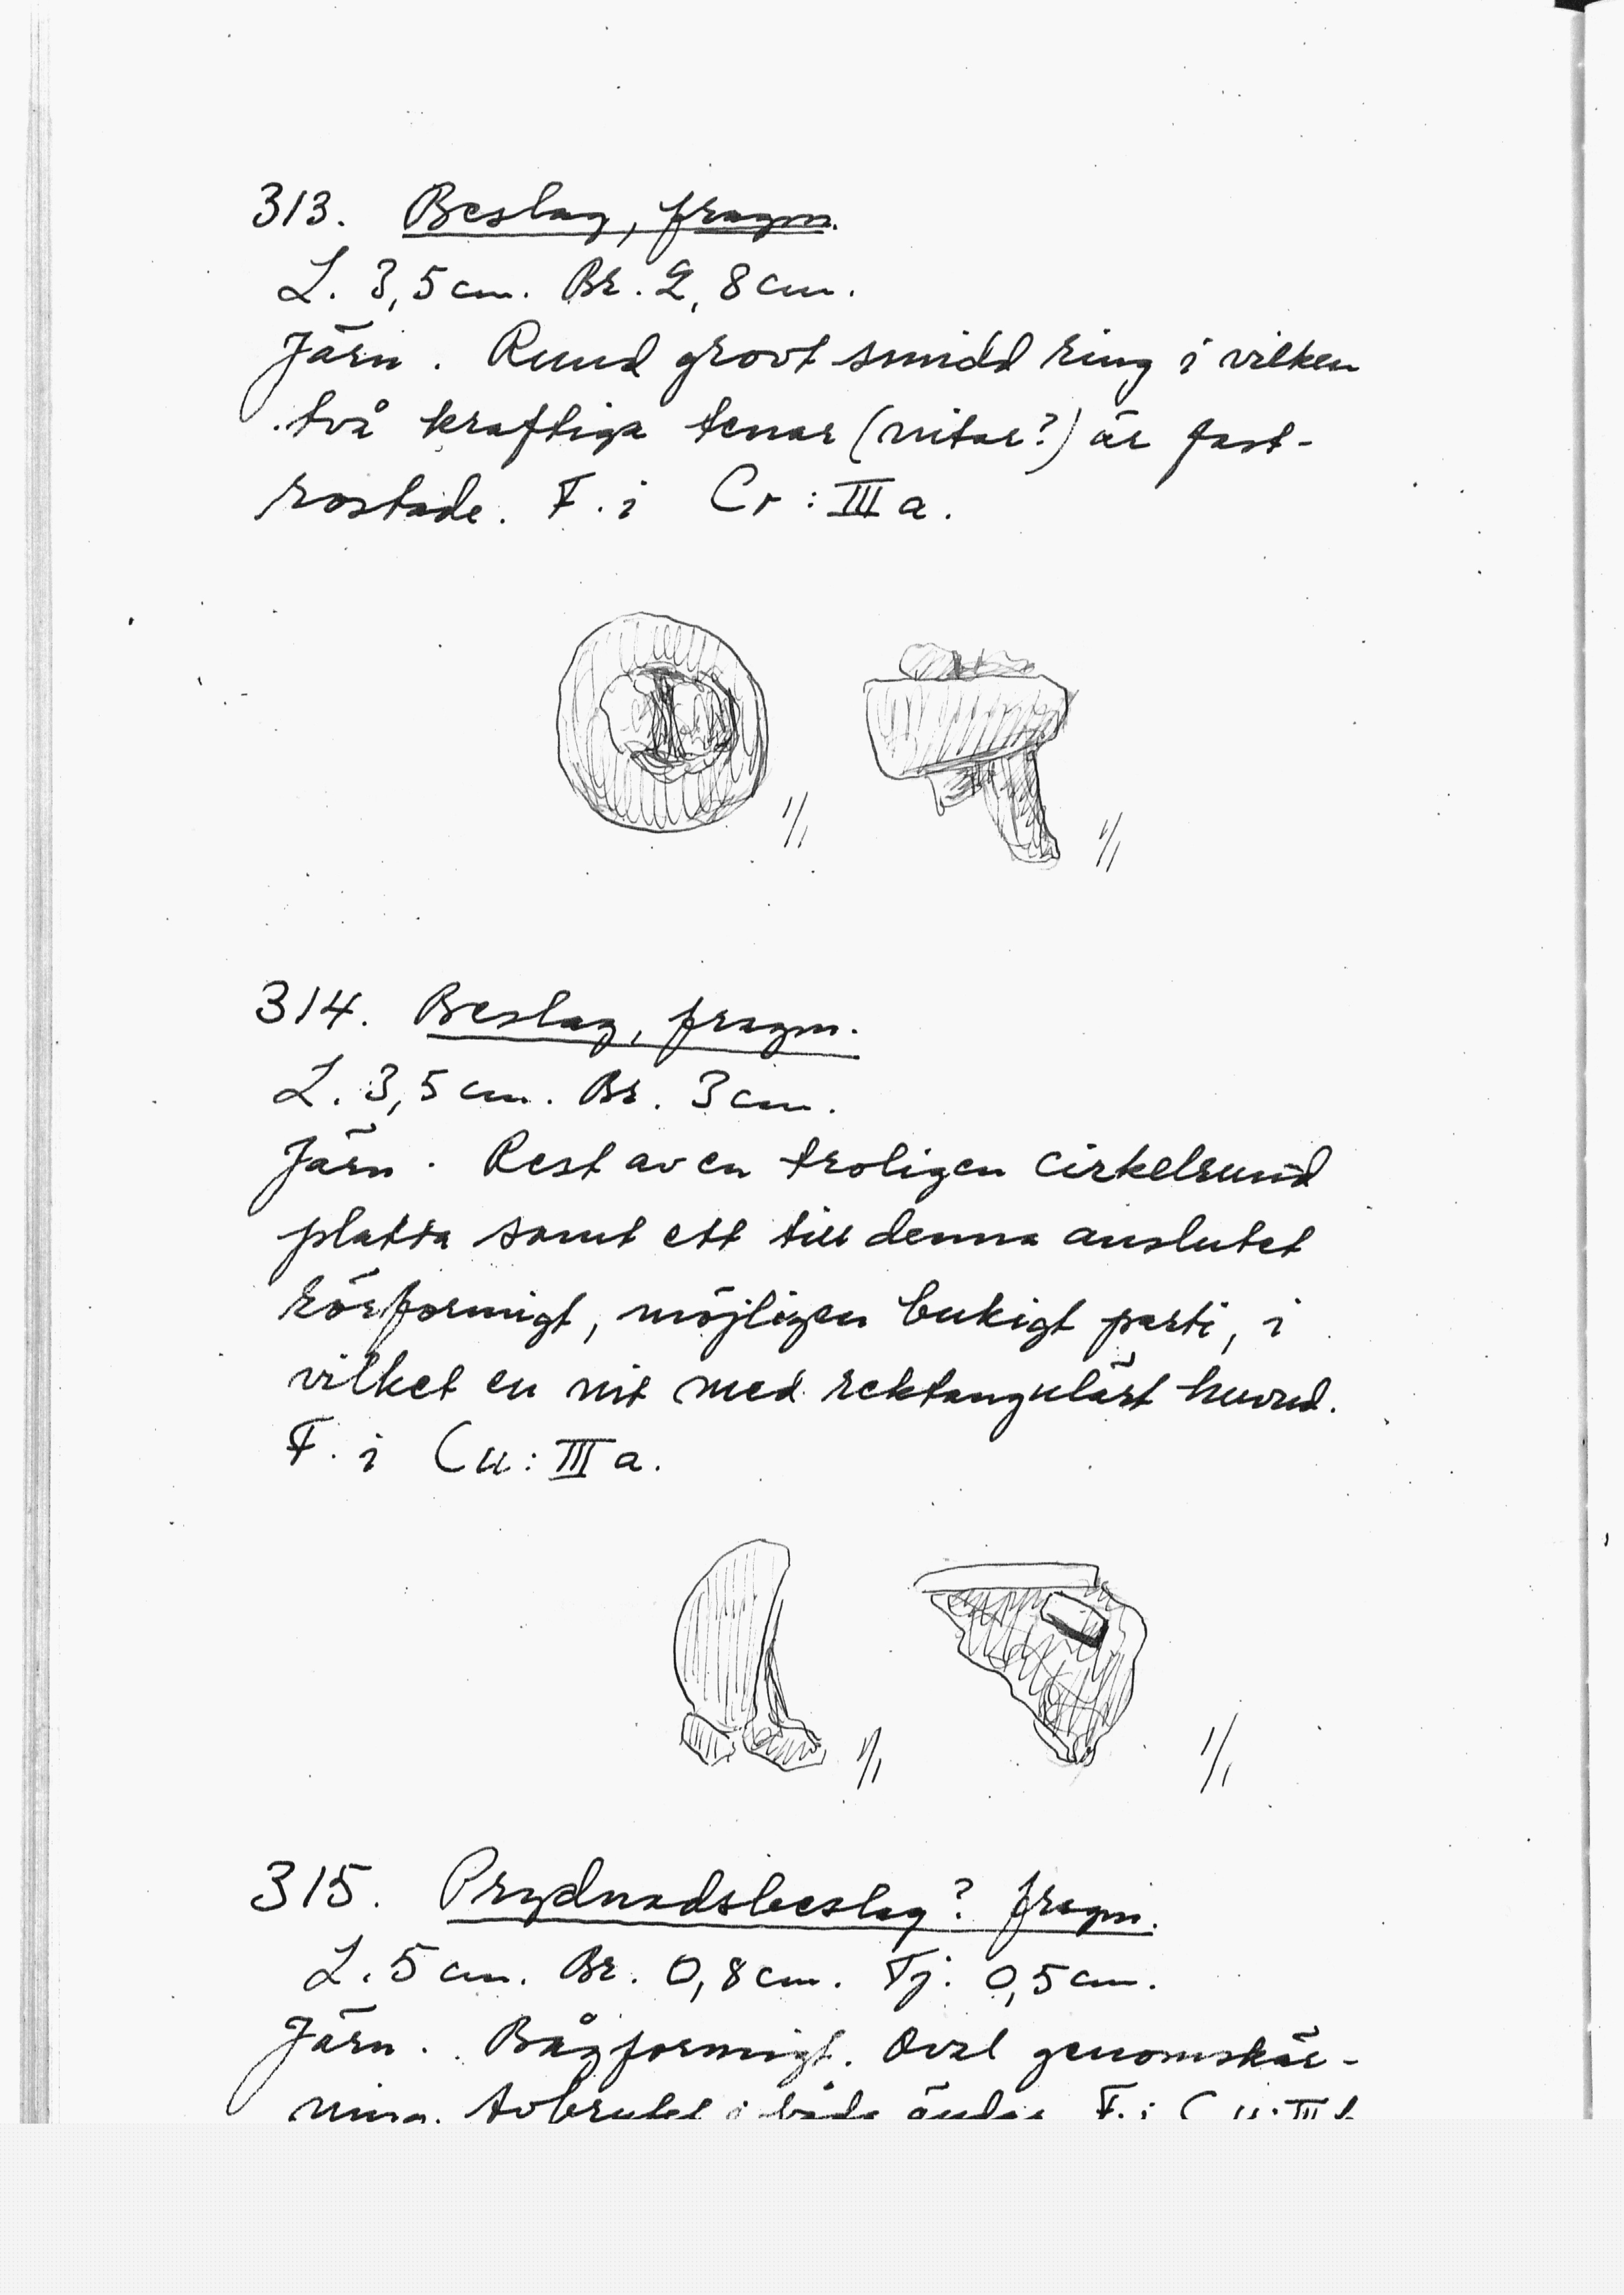 313. Beslag, fragm.
L. 3,5 cm. Br. 2,8 cm.
Järn. Rund grovt smidd ring i vilken
två kraftiga tenar (nitar?) är fast-
rostade. F. i Cr: III a.
1/1 1/1
314. Beslag, fragm.
L. 3,5 cm. Br. 3 cm.
Järn. Rest av en troligen cirkelrund
platta samt ett till denna anslutet
rörformigt, möjligen bukigt parti, i
vilket en nit med rektangulärt huvud.
F. i Cu: III a.
1/1 1/1
315. Prydnadsbeslag? fragm.
L. 5 cm. Br. 0,8 cm. Tj. 0,5 cm.
Järn. Bågformigt. Oval genomskär-
ning. Avbrutet i båda ändar. F. i